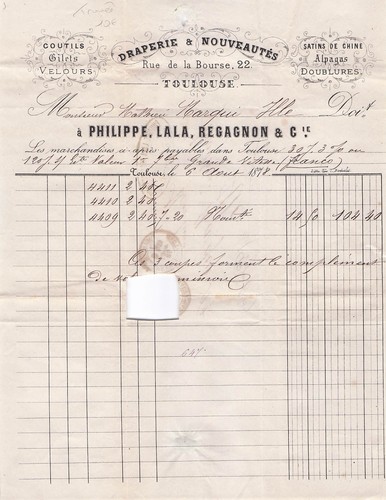 COUTILS
Gilets
VELOURS
DRAPERIE & NOUVEAUTÉS
Rue de la Bourse, 22.
TOULOUSE.
SATINS DE CHINE
Alpagas
DOUBLURES.
Monsieur Mathieu Marqui Doit
à PHILIPPE, LALA, REGAGNON & Cie
Les marchandises ci-après payables dans Toulouse 30 j. 3 % ou
120 j. Valeur 1er Grande Vitesse (franco)
Toulouse, le 6 Aout 187
4411 2 40
4410 2 40
4409 2 40 7-20 14 50 104 40
Ces 3 coupes forment le complement
de
647